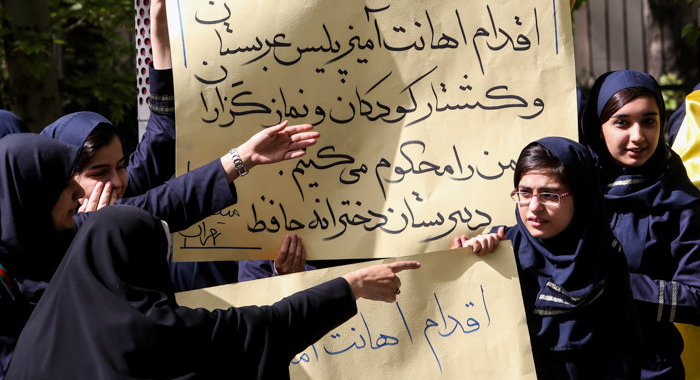 اقدام اهانت آمیز پلیس عربستان
و کشتار کودکان و نمازگزاران
یمن را محکوم می‌کنیم.
دبیرستان دخترانه حافظ
اقدام اهانت